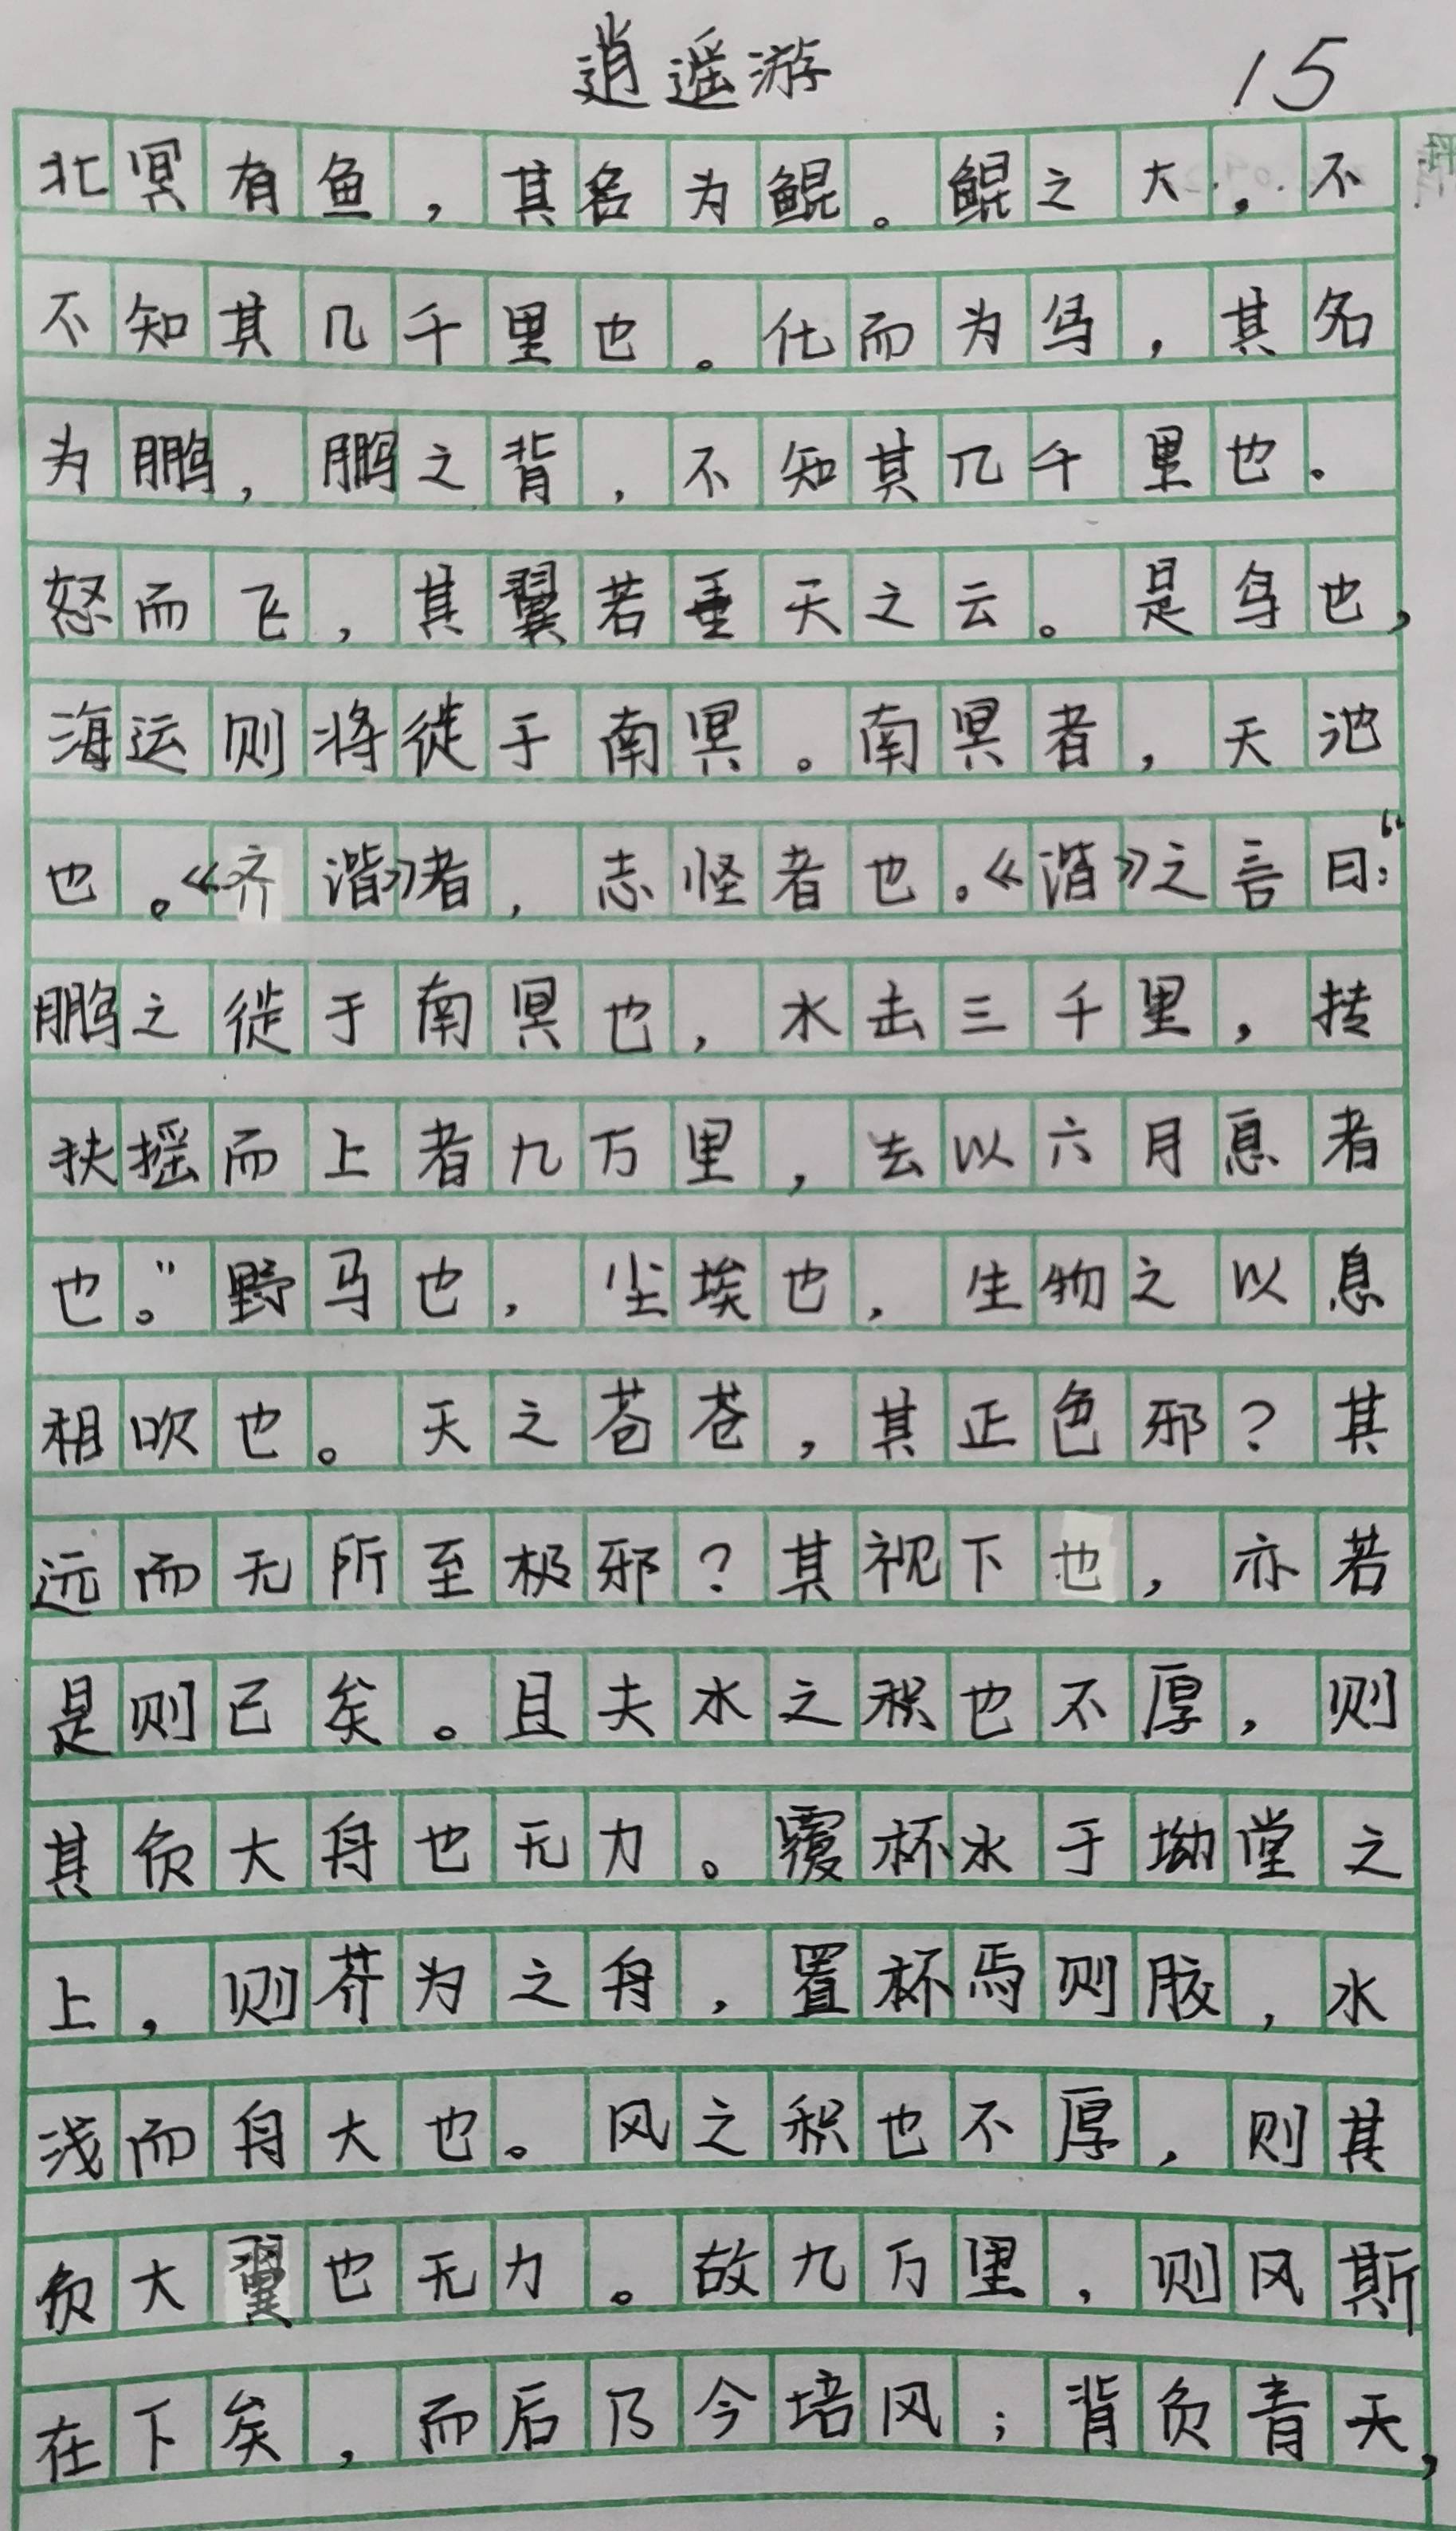 逍遥游 15
北冥有鱼，其名为鲲。鲲之大，不
不知其几千里也。化而为鸟，其名
为鹏，鹏之背，不知其几千里也。
怒而飞，其翼若垂天之云。是鸟也，
海运则将徙于南冥。南冥者，天池
也。《齐谐》者，志怪者也。《谐》之言曰：“
鹏之徙于南冥也，水击三千里，抟
扶摇而上者九万里，去以六月息者
也。”野马也，尘埃也，生物之以息
相吹也。天之苍苍，其正色邪？其
远而无所至极邪？其视下也，亦若
是则已矣。且夫水之积也不厚，则
其负大舟也无力。覆杯水于坳堂之
上，则芥为之舟，置杯焉则胶，水
浅而舟大也。风之积也不厚，则其
负大翼也无力。故九万里，则风斯
在下矣，而后乃今培风；背负青天，